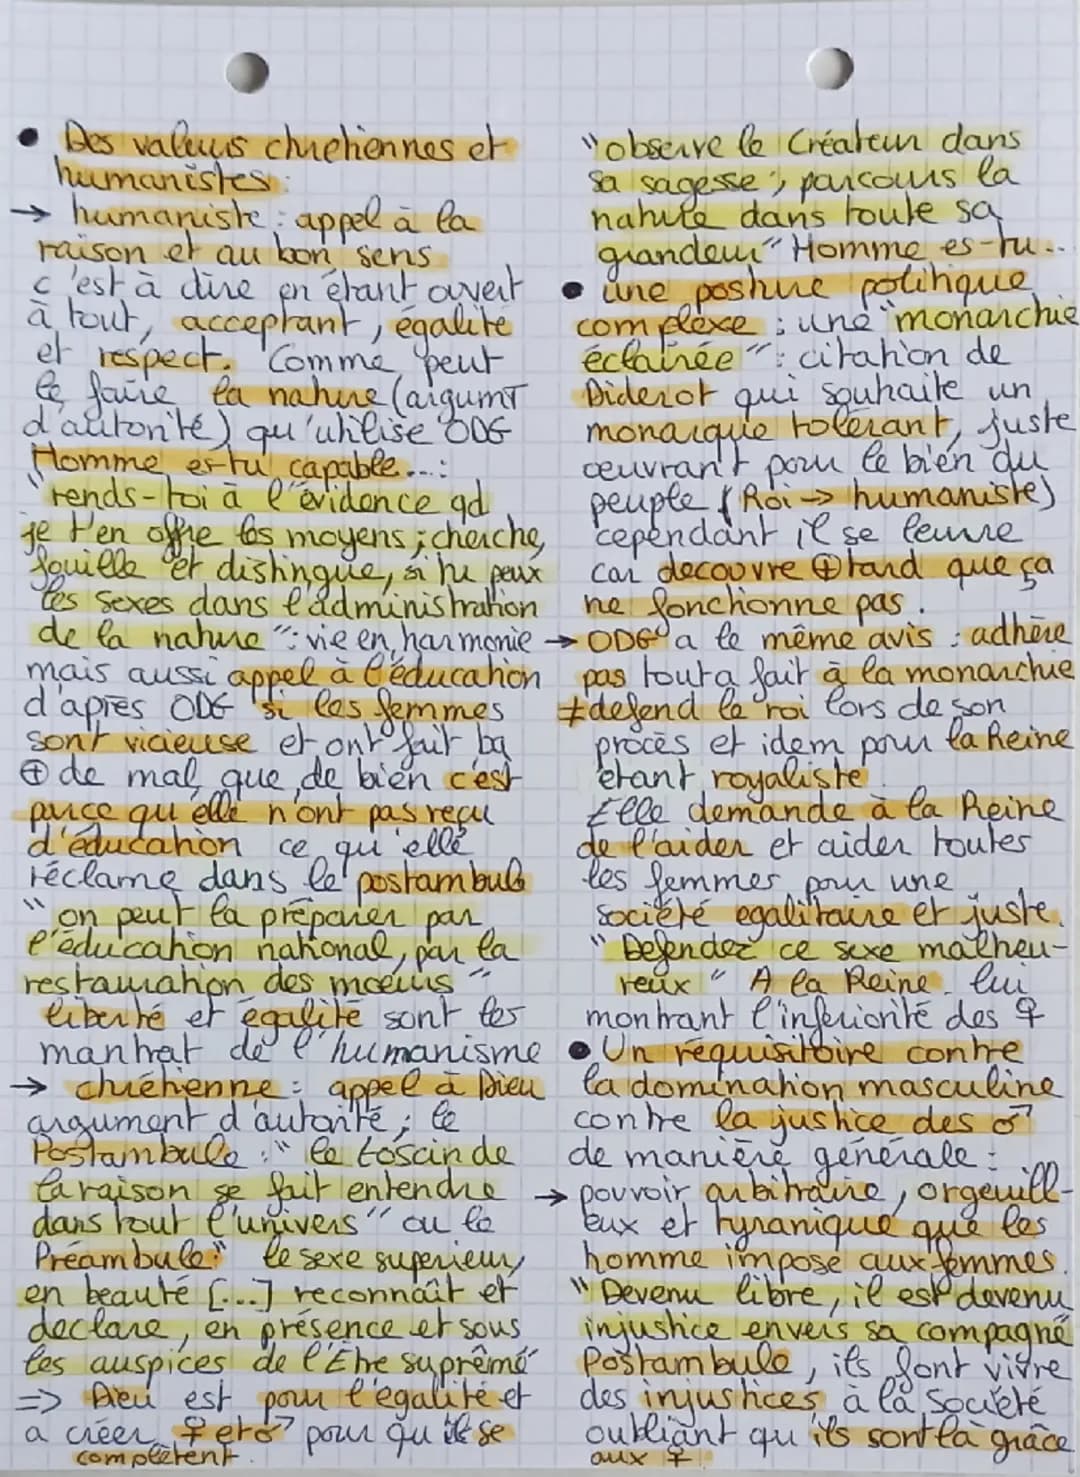 • Des valeurs chrétiennes et
humanistes :
→ humaniste : appel à la
raison et au bon sens
c'est à dire en étant ouvert
à tout, acceptant, égalité
et respect. Comme peut
le faire la nature (argumT
d'autorité) qu'utilise ODG
Homme es-tu capable...:
"rends-toi à l'évidence qd
je t'en offre les moyens ; cherche,
fouille et distingue, si tu peux
les sexes dans l'administration
de la nature" : vie en harmonie
mais aussi appel à l'éducation
d'après ODG si les femmes
sont vicieuse et ont fait bq
⊕ de mal que de bien c'est
parce qu'elle n'ont pas reçu
d'éducation ce qu'elle
réclame dans le postambule
"on peut la préparer par
l'éducation national, par la
restauration des moeurs"
liberté et égalité sont les
mantrat de l'humanisme
→ chrétienne : appel à Dieu
argument d'autorité ; le
Postambule : "le toscin de
la raison se fait entendre
dans tout l'univers" ou le
Préambule : "le sexe superieur,
en beauté [...] reconnaît et
declare, en présence et sous
les auspices de l'Être suprême"
=> Dieu est pour l'égalité et
a créer ♀ et ♂ pour qu'ils se
complètent.
"observe le Créateur dans
sa sagesse ; parcours la
nature dans toute sa
grandeur" Homme es-tu...
• une posture politique
complexe : une "monarchie
éclairée" : citation de
Diderot qui souhaite un
monarque tolérant, juste
oeuvrant pour le bien du
peuple (Roi → humaniste)
cependant il se leurre
car decouvre ⊕ tard que ça
ne fonctionne pas.
→ ODG a le même avis : adhère
pas tout a fait à la monarchie
≠ defend le roi lors de son
procès et idem pour la Reine
étant royaliste
Elle demande à la Reine
de l'aider et aider toutes
les femmes pour une
société egalitaire et juste.
"Defendez ce sexe malheu-
reux" A la Reine. lui
montrant l'inferiorité des ♀
• Un réquisitoire contre
la domination masculine
contre la justice des ♂
de manière générale :
→ pouvoir arbitraire, orgeuill-
eux et tyranique que les
homme impose aux femmes.
"Devenu libre, il est devenu
injustice envers sa compagne"
Postambule, ils font vivre
des injustices à la Société
oubliant qu'ils sont là grâce
aux ♀